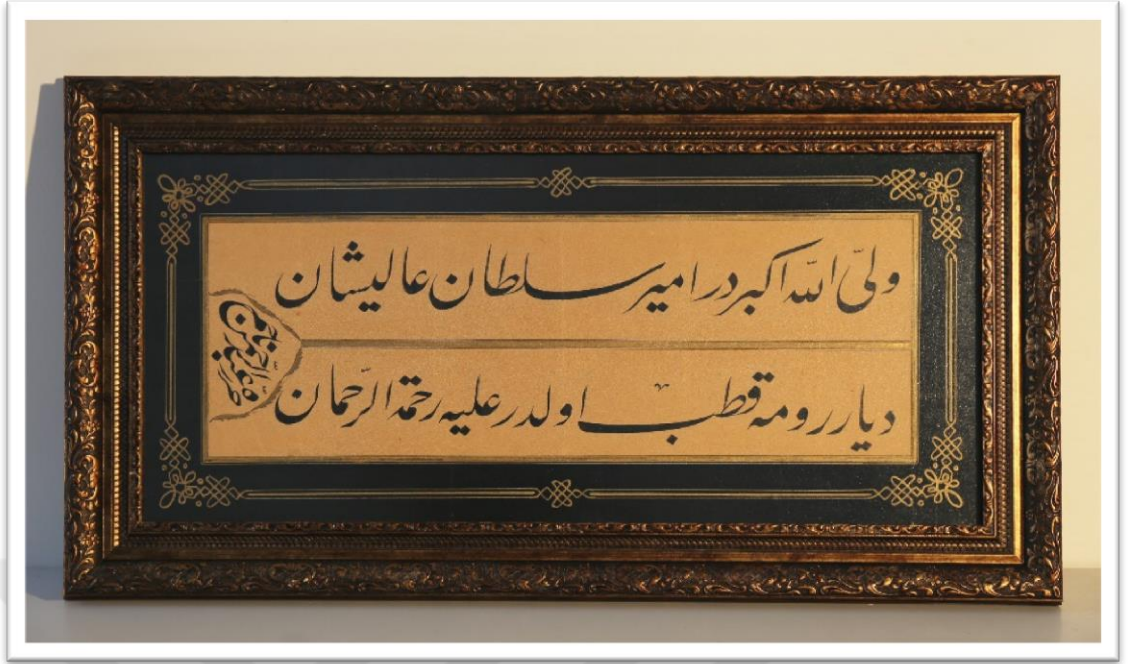 ولىّ الله اكبردر امير سلطان عاليشان
ديار رومه قطب اولدر عليه رحمة الرّحمان